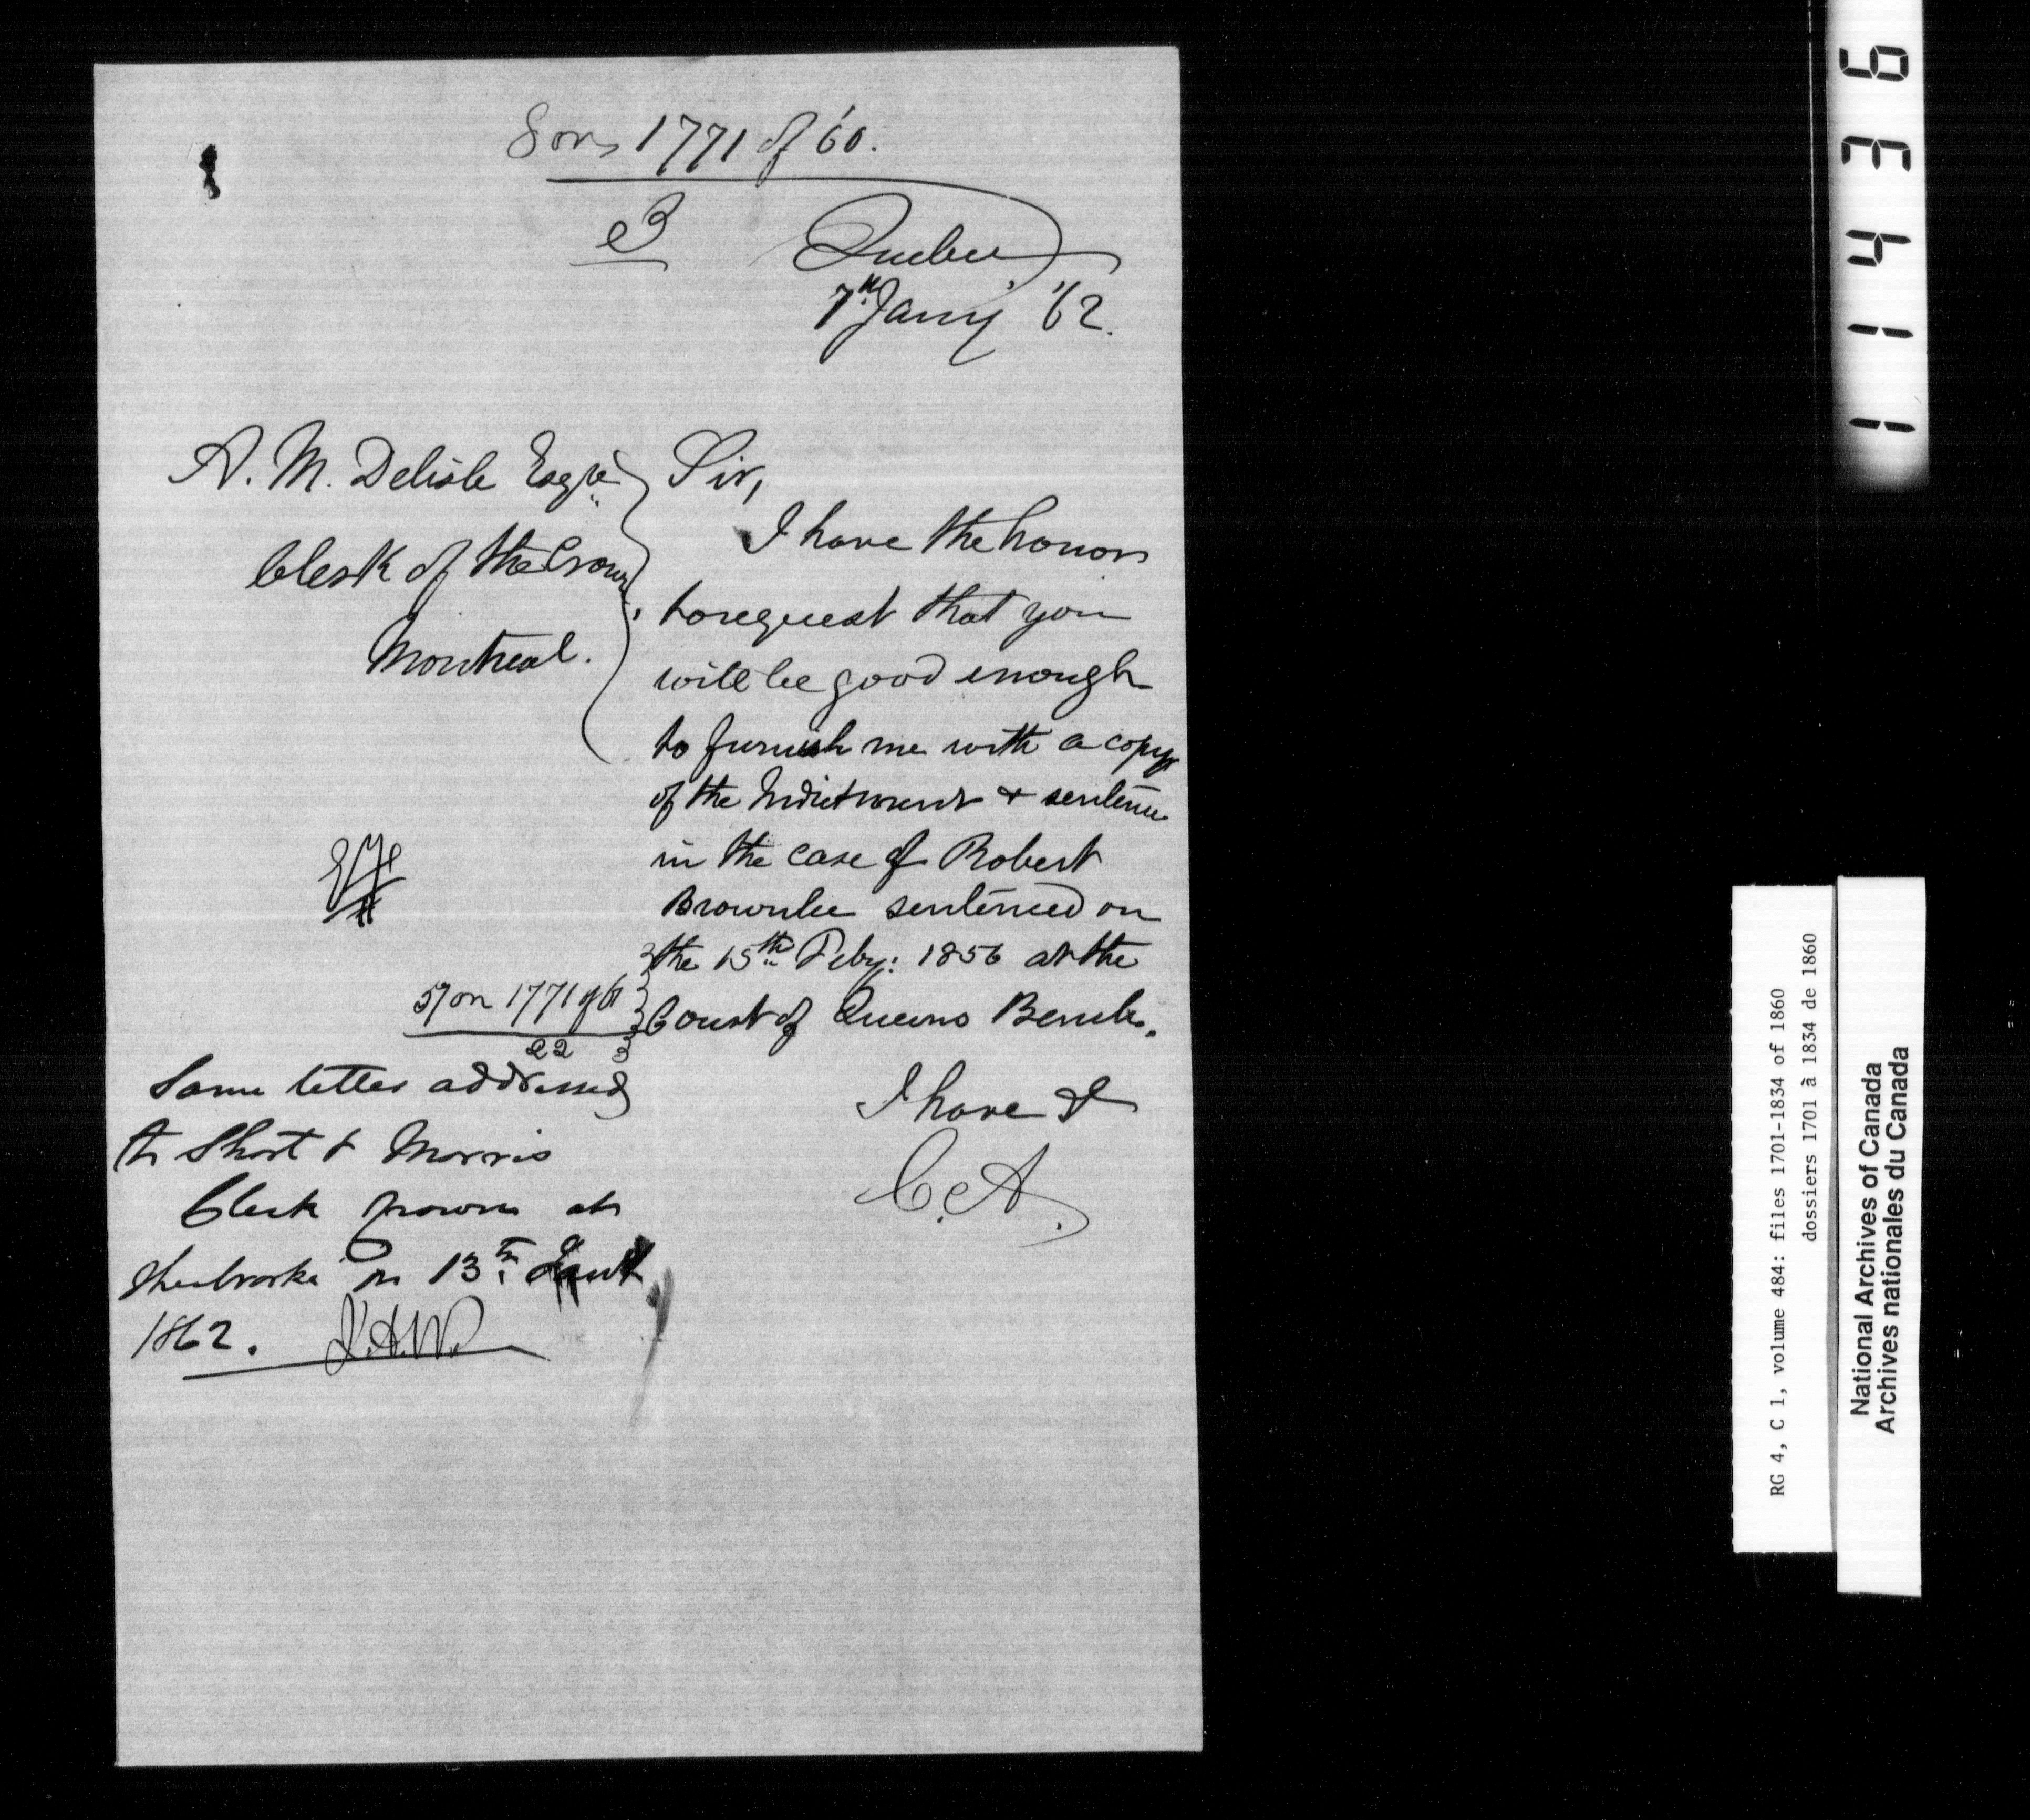 8 on 1771 of '60.
e3
Quebec
7th Jany '62.
A. M. Delisle Esqre
Clerk of the Crown
Montreal.
Sir,
I have the honor
to request that you
will be good enough
to furnish me with a copy
of the Indictment & sentence
in the case of Robert
Brownlee sentenced on
the 15th Feby: 1856 at the
Court of Queens Bench.
I have &
C.A.
57 on 1771 of 60
22
Same letter addressed
to Short & Morris
Clerk Crown at
Sherbrooke on 13th
1862.
11436
RG 4, C 1, volume 484: files 1701-1834 of 1860
dossiers 1701 à 1834 de 1860
National Archives of Canada
Archives nationales du Canada